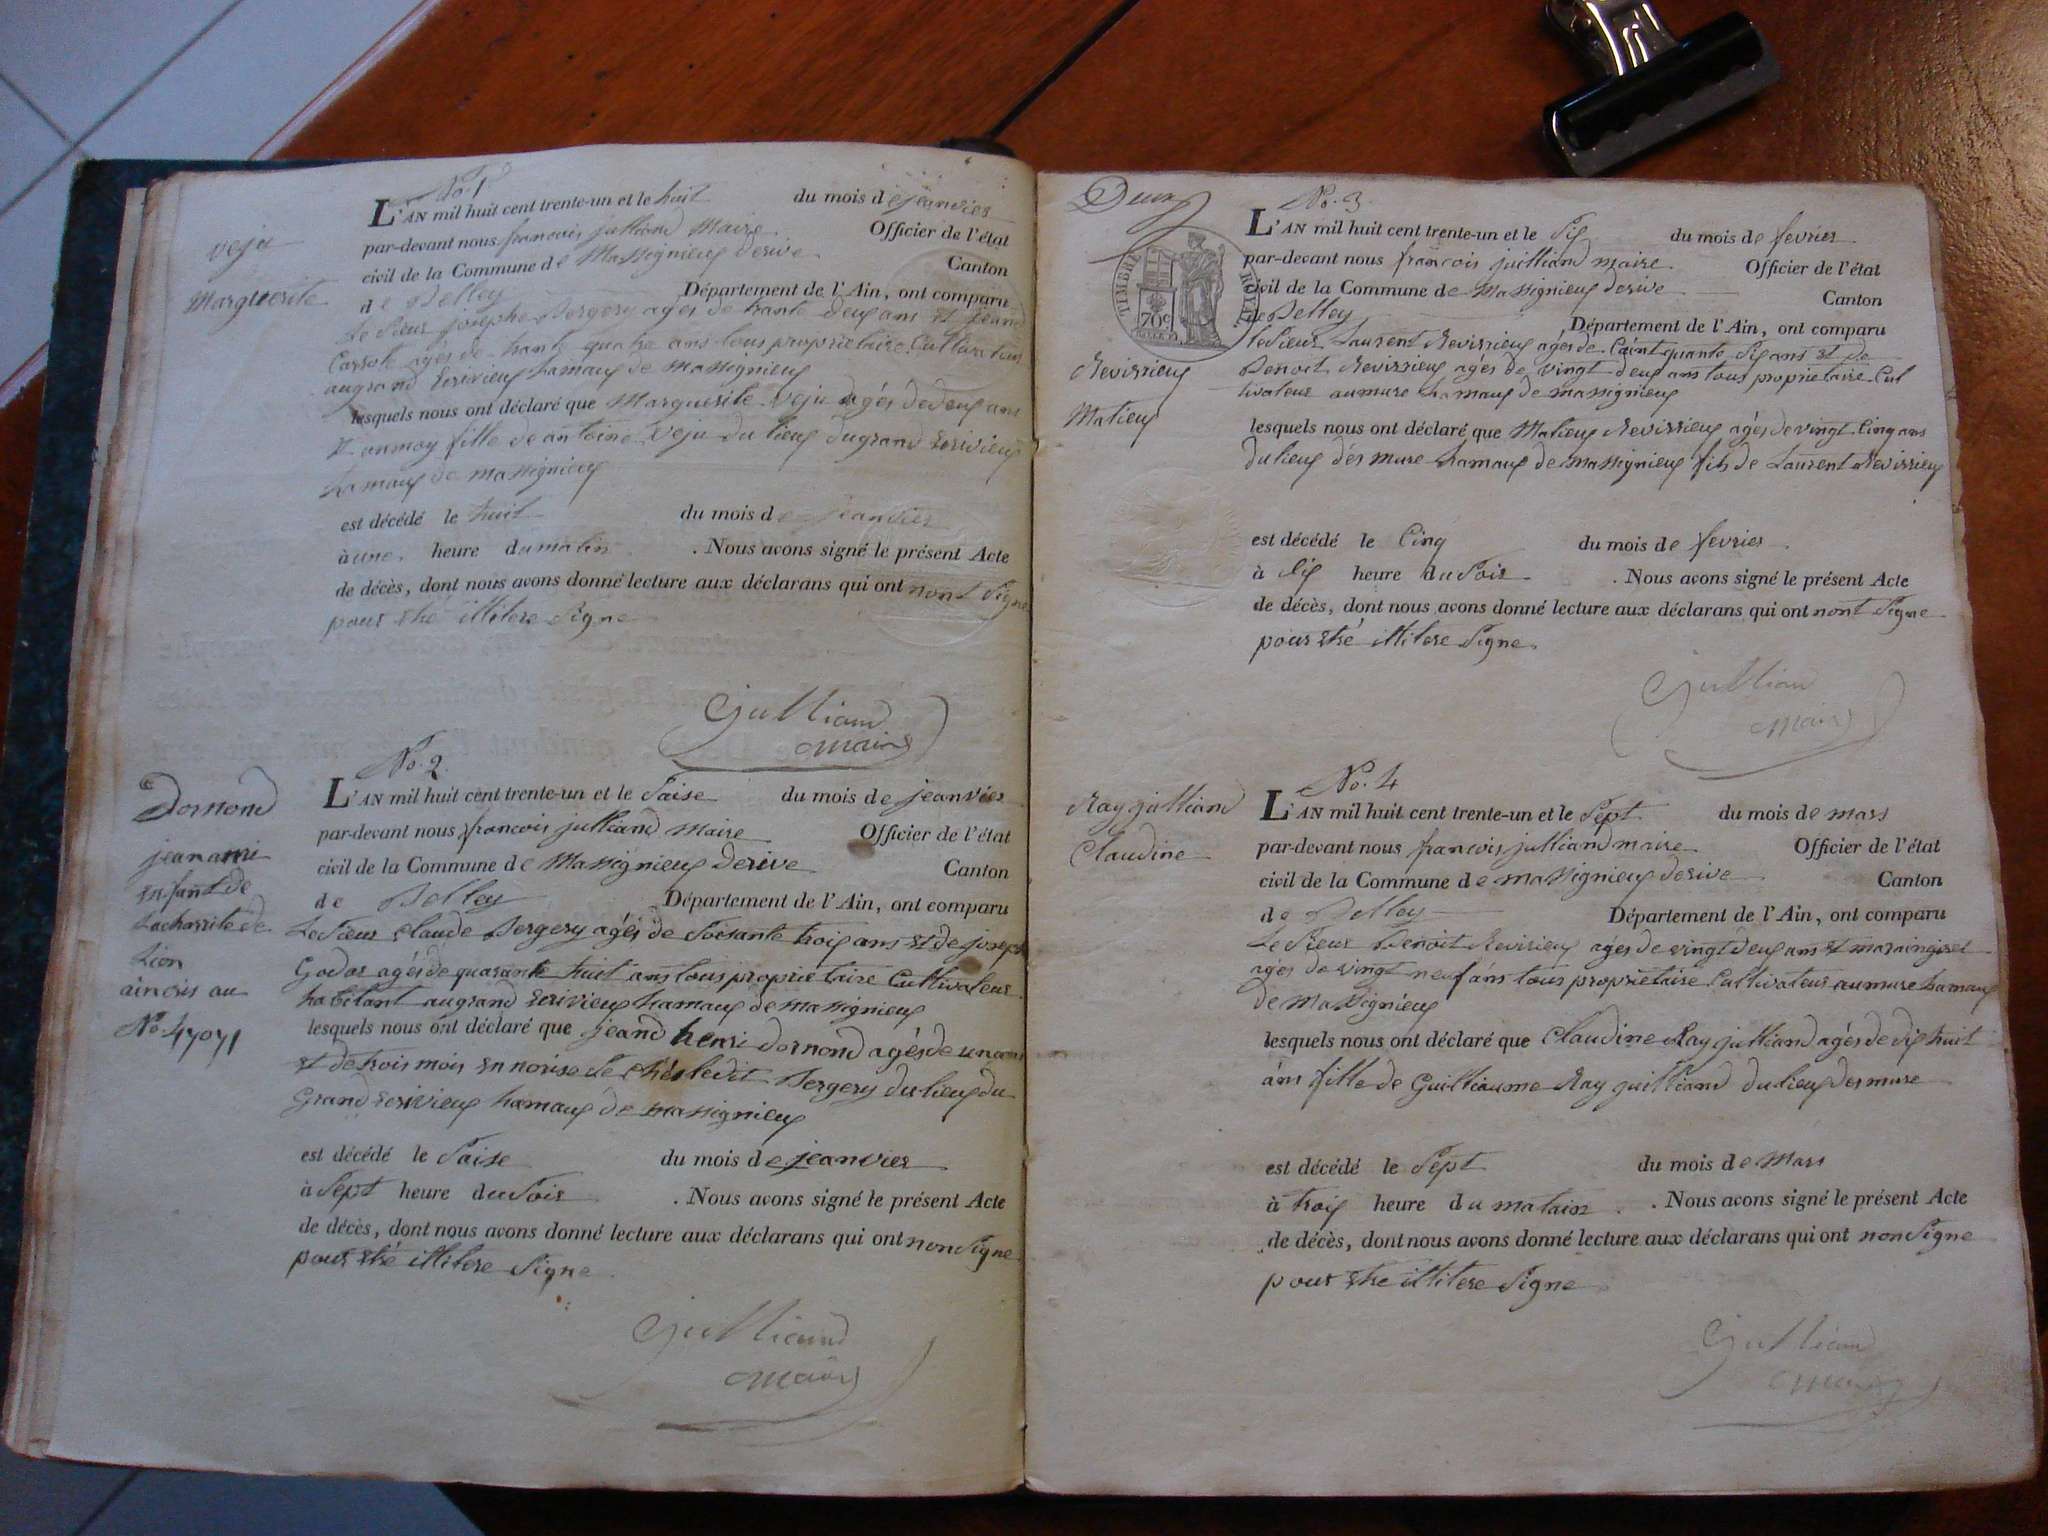 No. 1
L'AN mil huit cent trente-un et le huit du mois de jeanvier
par-devant nous francois julliand Maire Officier de l'état
civil de la Commune de Massignieux derive Canton
de Belley Département de l'Ain, ont comparu
le Sieur josephe Bergery agés de trante deux ans et jeand
agés de trante quatre ans tous proprietaire Cultivateur
augrand hamaux de Massignieux
lesquels nous ont déclaré que Marguerite veju agés de deux ans
et fille de antoine veju du lieux dugrand
hamaux de massignieux
est décédé le huit du mois de jeanvier
à une heure du matin . Nous avons signé le présent Acte
de décès, dont nous avons donné lecture aux déclarans qui ont nont Signe
pour etré illitere Signe
Julliand
maire
veju
Marguerite
No. 2
L'AN mil huit cent trente-un et le Saise du mois de jeanvier
par-devant nous francois julliand Maire Officier de l'état
civil de la Commune de Massignieux derive Canton
de Belley Département de l'Ain, ont comparu
Le Sieur Claude Bergery agés de Soisante trois ans et de joseph
Godar agés de quarante huit ans tous proprietaire Cultivateur
habitant augrand hamaux de massignieux
lesquels nous ont déclaré que jeand henri dornond agés de un ans
et de trois mois en norise Ché ledit Bergery du lieux du
Grand hamaux de massignieux
est décédé le Saise du mois de jeanvier
à Sept heure du Soir . Nous avons signé le présent Acte
de décès, dont nous avons donné lecture aux déclarans qui ont non Signe
pour etré illitere Signe
Julliand
maire
Dornond
jean
enfant de
Lacharrite de
Lion
au
No. 47071
Deux
No. 3
L'AN mil huit cent trente-un et le Six du mois de fevrier
par-devant nous francois julliand maire Officier de l'état
civil de la Commune de Massignieux derive Canton
de Belley Département de l'Ain, ont comparu
le Sieur Laurent Revirrieux agés de Caintquante Six ans et de
Benoit Revirrieux agés de vingt deux ans tous proprietaire Cul
tivateur aumure hamaux de massignieux
lesquels nous ont déclaré que Matieux Revirrieux agés de vingt Cinq ans
du lieux dés mure hamaux de Massignieux fils de Laurent Revirrieux
est décédé le Cinq du mois de fevrier
à dix heure du Soir . Nous avons signé le présent Acte
de décès, dont nous avons donné lecture aux déclarans qui ont nont Signe
pour etré illitere Signe
Julliand
maire
TIMBRE ROYAL
70c
Revirrieux
Matieux
No. 4
L'AN mil huit cent trente-un et le Sept du mois de mars
par-devant nous francois julliand maire Officier de l'état
civil de la Commune de massignieux derive Canton
de Belley Département de l'Ain, ont comparu
Le Sieur Benoit Revirieux agés de vingt deux ans et
agés de vingt neuf ans tous proprietaire Cultivateur aumure hamaux
de Massignieux
lesquels nous ont déclaré que Claudine Ray julliand agés de dix huit
ans fille de Guilliaume Ray juilliand du lieux des mure
est décédé le Sept du mois de Mars
à trois heure du matain . Nous avons signé le présent Acte
de décès, dont nous avons donné lecture aux déclarans qui ont non Signe
pour etre illitere Signe
Julliand
maire
Ray julliand
Claudine